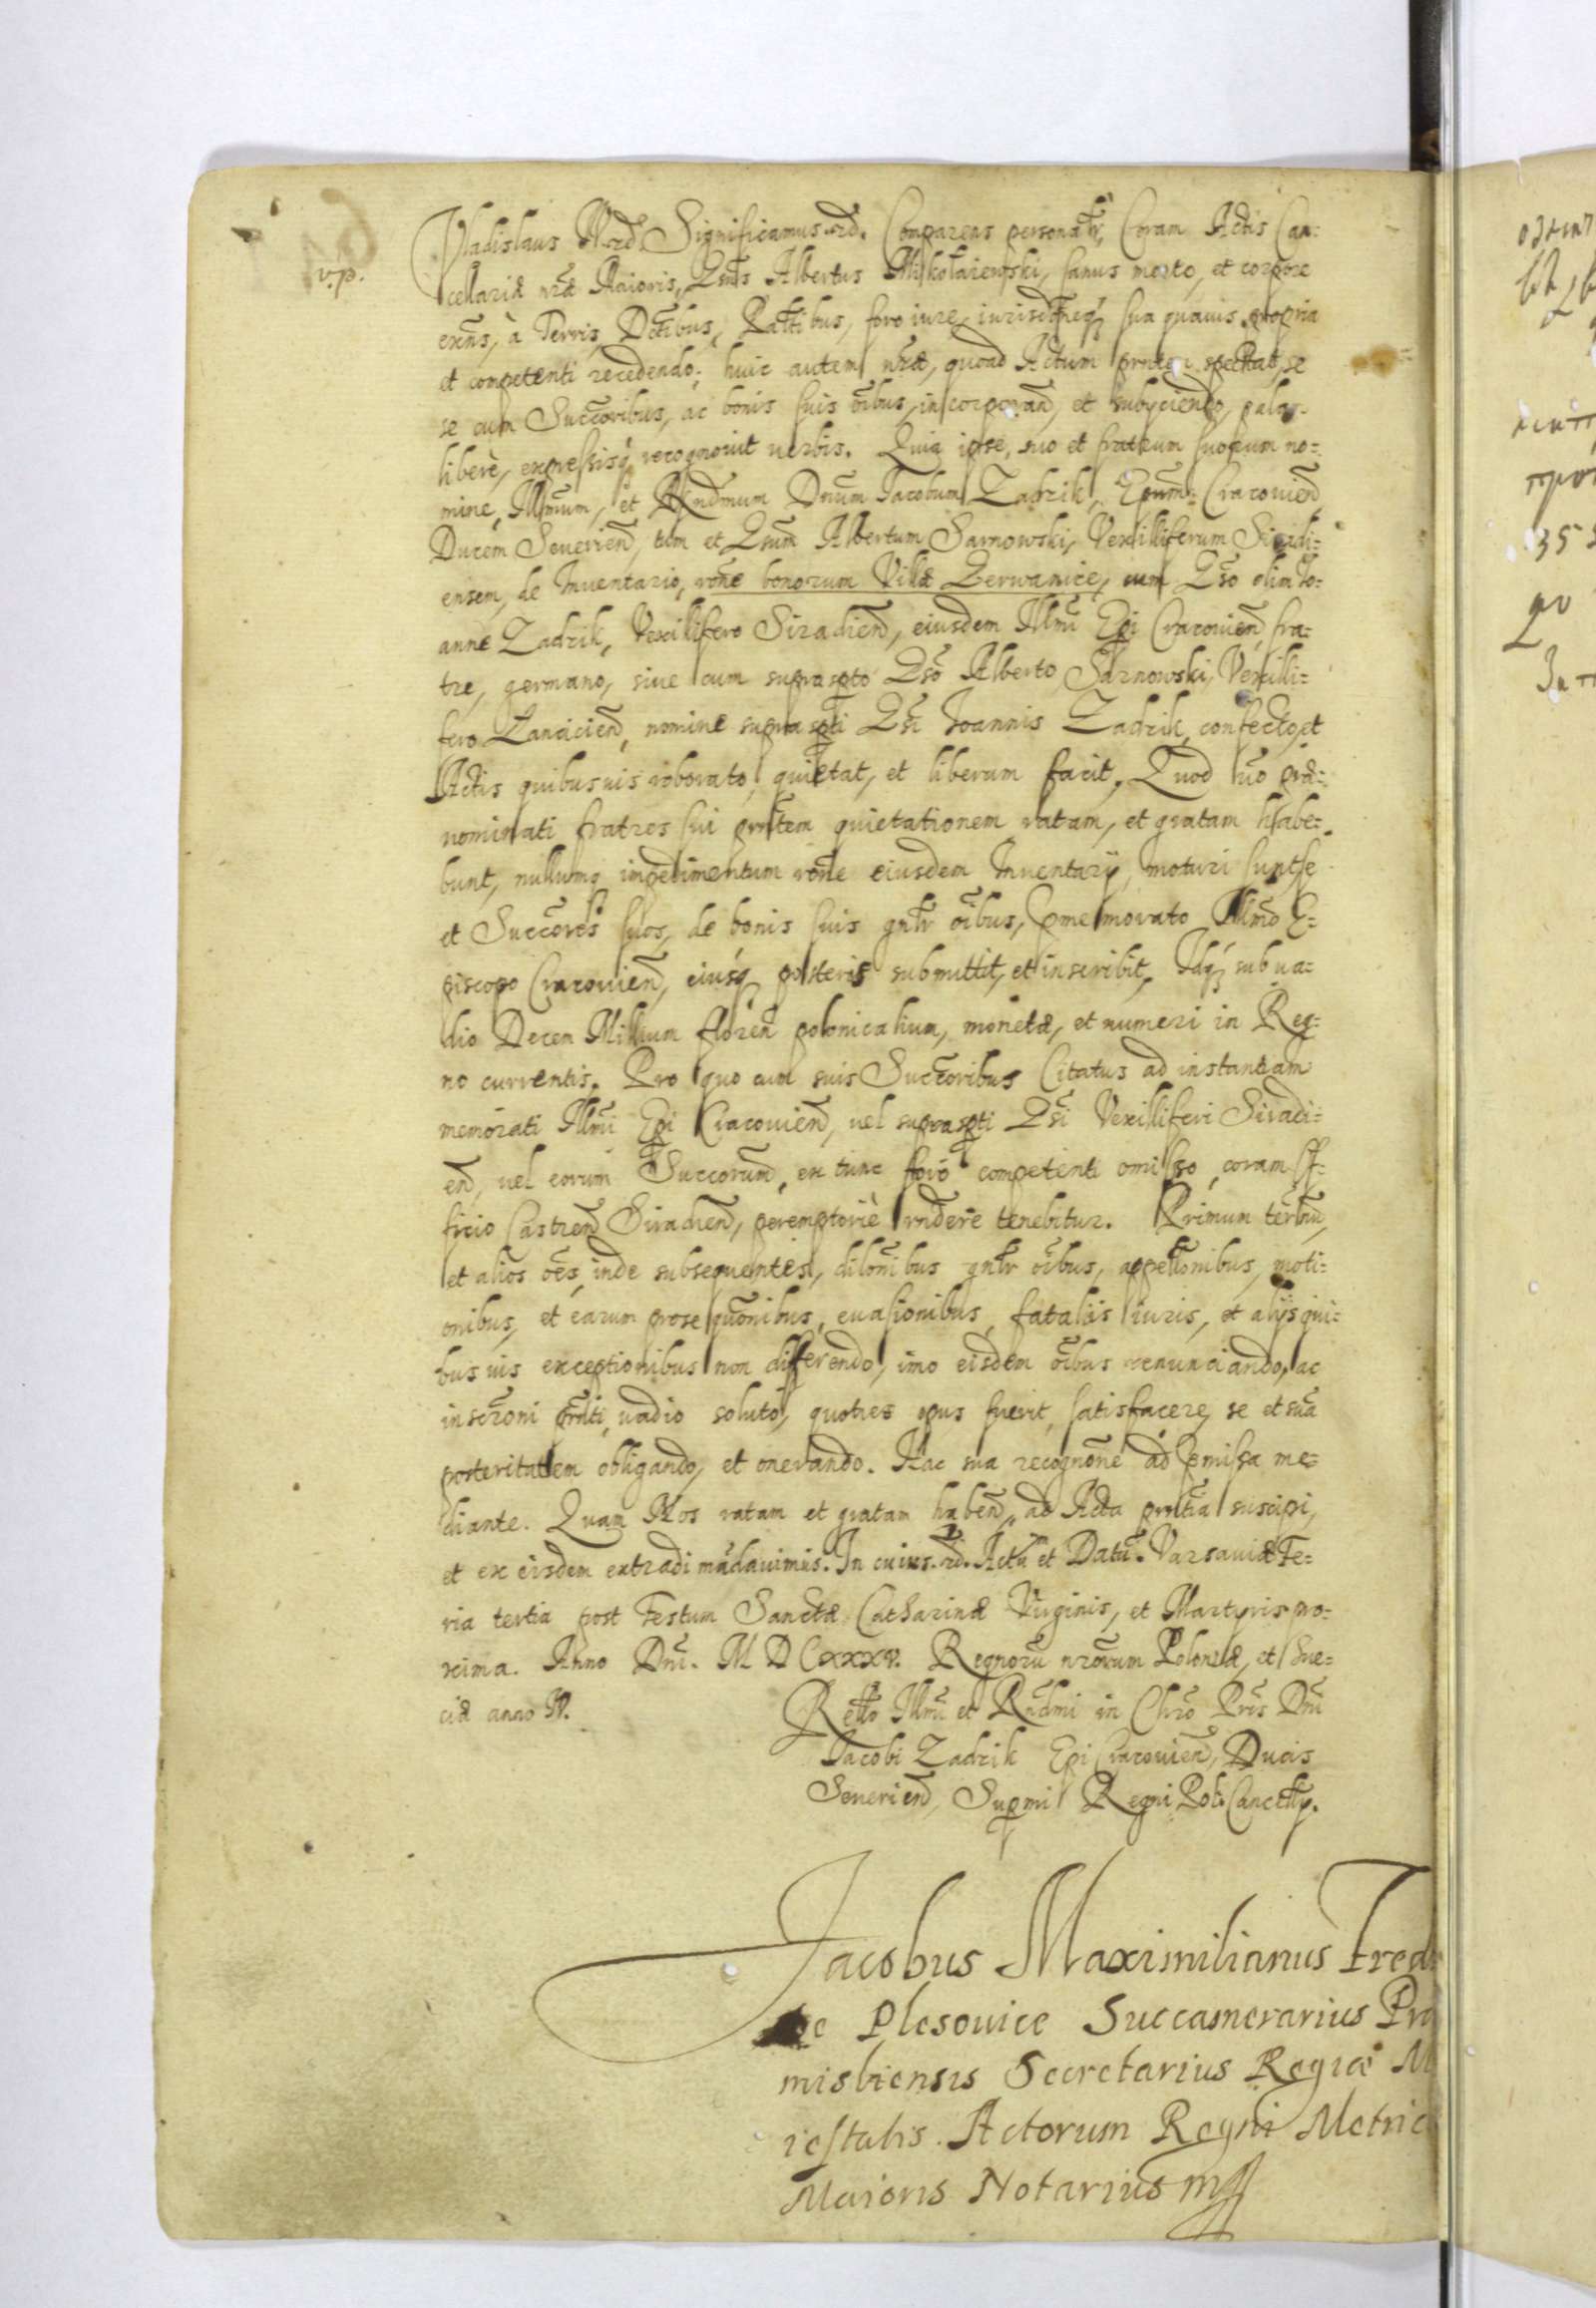 Vladislaus IV. etc. Significamus etc. Comparens personalr̃, Coram Actis Can:
v.p.
cellariæ nr̃æ Maioris, Gñs Albertus Mikołaiewski, sanus mente, et corpore
exñs, à Terris, Dctibus, Pattibus, foro iure, iurisdoneq; sua quauis propria
et competenti recedendo; huic autem nr̃æ, quoad Actum prñtem spectat, se
se cum Succoribus, ac bonis suis oĩbus, incorporañ, et subyciendo, palam
liberè, expressisq; recognouit uerbis. Quia ipse, suo et fratrum suorum no:
mine, Illm̃um, et Rñdmum Dñum Iacobum Zadzik, Epum: Cracouieñ,
Ducem Seuerieñ, tum et Gsum Albertum Sarnowski, Vexilliferum Siradi:
ensem, de Inuentario, rõne bonorum Villæ Zerwanice, cum Gso olim Io:
anne Zadzik, Vexillifero Siradieñ, eiusdem Illmi Epi Cracouieñ, fra:
tre, germano, siue cum suprascpto Gso Alberto Sarnowski, Vexilli:
fero Lancicieñ, nomine suprascpti Gsi Ioannis Zadzik, confecto, et
Actis quibusuis roborato, quietat, et liberum facit, Quod uõ præ:
nominati fratres sui prñtem quietationem ratam, et gratam habe:
bunt, nullumq impedimentum rõne eiusdem Inuentarÿ, moturi sunt, se
et Succores suos, de bonis suis gñlr oĩbus, pmemorato Illmo E:
piscopo Cracouieñ, eiusq posteris submittit, et inscribit, Idq; sub ua:
dio Decem Millium floreñ polonicalium, monetæ, et numeri in Reg:
no currentis. Pro quo cum suis Succoribus Citatus ad instantiam
memorati Illmi Epi Cracouieñ, uel suprascpti Gsi Vexilliferi Siradi:
eñ, uel eorum Succorum, ex tunc foro competenti omisso, coram Of:
ficio Castreñ Siradieñ, peremptoriè rñdere tenebitur. Primum termũ,
et alios oẽs, inde subsequentes, dilonibus gñlr oĩbus, appellonibus, moti:
onibus, et earum prosequonibus, euasionibus, fatalijs iuris, et alijs qui:
bus uis exceptionibus non differendo, imo eisdem oĩbus renunciando, ac
inscroni prñti, uadio soluto, quoties opus fuerit, satisfacere, se et suã
posteritatem obligando, et onerando. Hac sua recognone ad pmissa me:
diante. Quam Nos ratam et gratam habeñ, ad Acta prñtia suscipi,
et ex eisdem extradi mãdauimus. In cuius. rd. Actũ et Datũ. Varsauiæ Fe:
ria tertia post Festum Sanctæ Catharinæ Virginis, et Martyris pro:
xima. Anno Dni. MDCXXXV. Regnorũ nrorum Poloniæ, et Sue:
ciæ anno IV.
Relto Illmi et Rñdmi in Chro Pris Dni
Iacobi Zadzik Epi Cracouieñ, Ducis
Seuerieñ, Supmi Regni Pol: Cancellÿ.
Jacobus Maximilianus Fred
de Plesouice Succamerarius Præ
misliensis Secretarius Regiæ M
iestatis. Actorum Regni Metric
Maioris Notarius mp